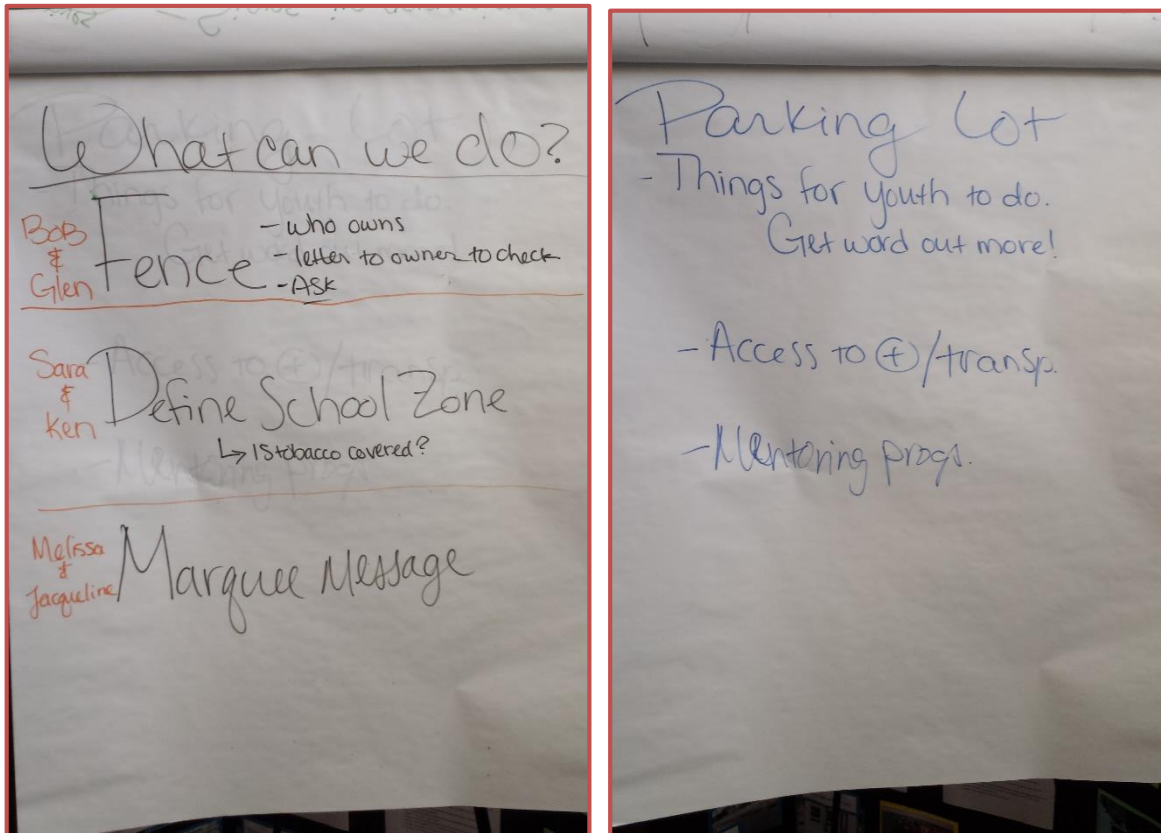 What can we do?
Bob & Glen
Fence
- who owns
- letter to owner to check
- ASK
Sara & Ken
Define School Zone
↳ Is tobacco covered?
Melissa & Jacqueline
Marquee Message
Parking Lot
- Things for youth to do.
Get word out more!
- Access to ⊕/transp.
- Mentoring progs.